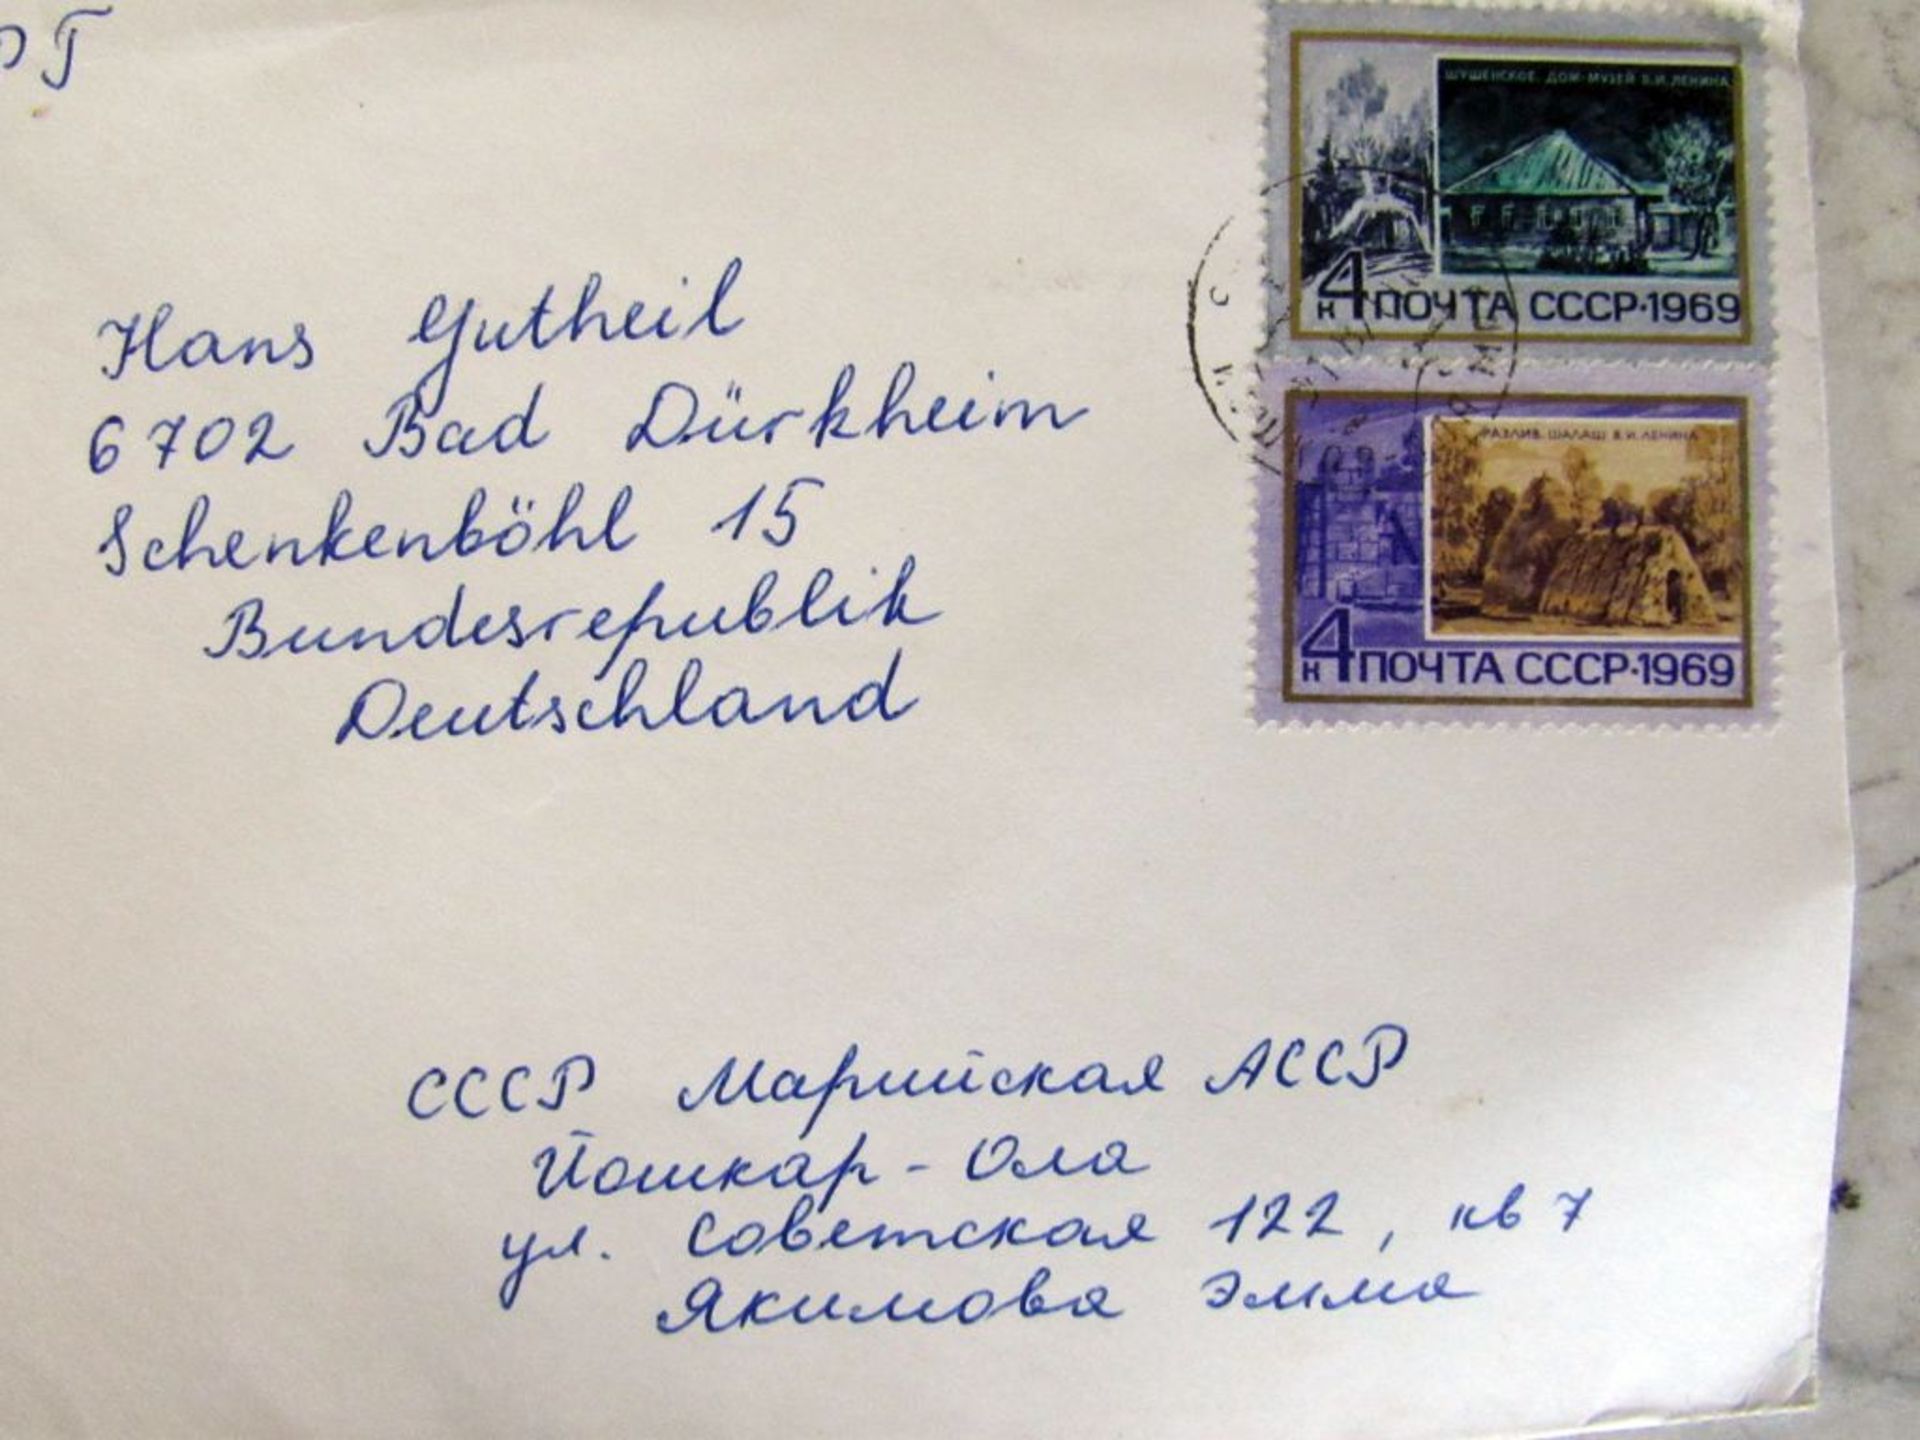 Hans Gutheil
6702 Bad Dürkheim
Schenkenböhl 15
Bundesrepublik
Deutschland
ШУШЕНСКОЕ. ДОМ-МУЗЕЙ В.И. ЛЕНИНА
4к ПОЧТА СССР·1969
РАЗЛИВ. ШАЛАШ В.И. ЛЕНИНА
4к ПОЧТА СССР·1969
СССР Марийская АССР
Йошкар-Ола
ул. Советская 122, кв 7
Якимова Эмма